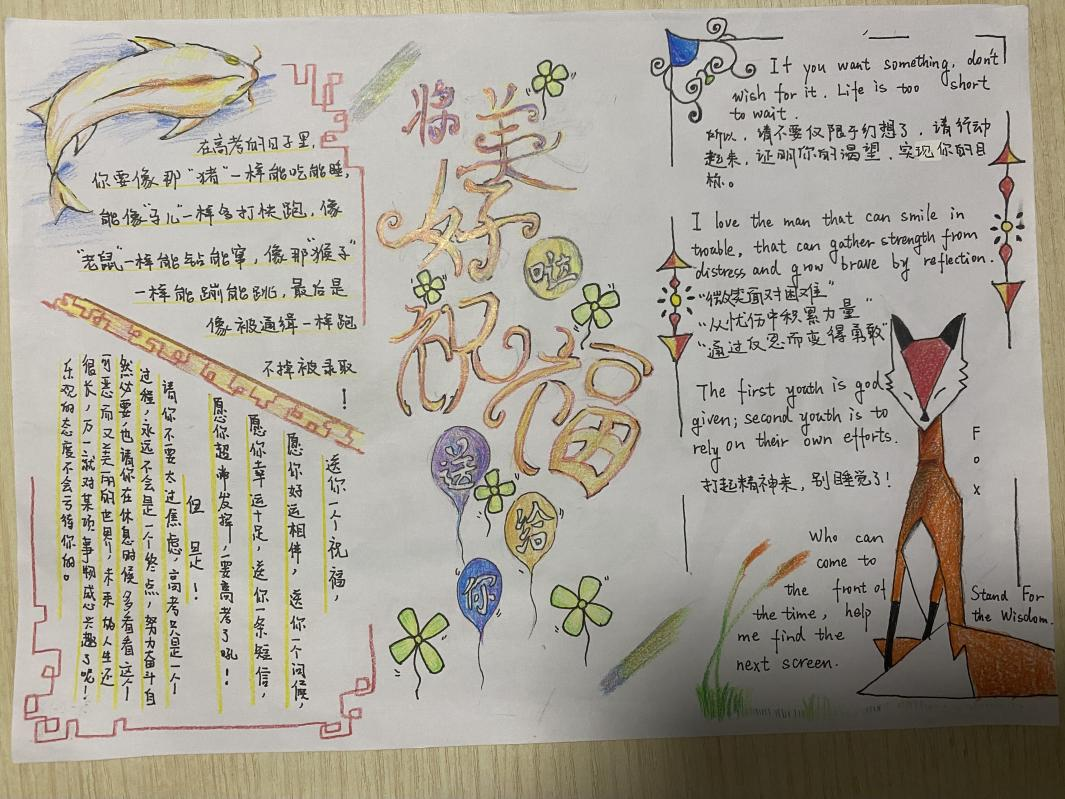 在高考的日子里,
你要像那"猪"一样能吃能睡,
能像"孑儿"一样多打快跑,像
"老鼠"一样能钻能窜,像那"猴子"
一样能蹦能跳,最后是
像被通缉一样跑
不掉被录取
!
送你一个祝福,
愿你好运相伴,送你一个问候,
愿你幸运十足,送你一条短信,
愿你超常发挥,要高考了吼!
但是!
请你不要太过焦虑,高考只是一个
过程,永远不会是一个终点,努力奋斗自
然必要,也请你在休息时候多看看这个
可恶而又美丽的世界,未来的人生还
很长,万一就对某项事物感兴趣了呢!
乐观的态度不会亏待你的。
将美
好
祝福
送
给
你
啦
If you want something, don't
wish for it. Life is too short
to wait.
所以,请不要仅限于幻想了,请行动
起来,证明你的渴望,实现你的目
标。
I love the man that can smile in
trouble, that can gather strength from
distress and grow brave by reflection.
"微笑面对困难"
"从忧伤中积累力量"
"通过反思而变得勇敢"
The first youth is god
given; second youth is to
rely on their own efforts.
打起精神来,别睡觉了!
Who can
come to
the front of
the time, help
me find the
next screen.
Fox
Stand For
the Wisdom.